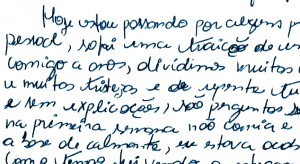 Hoje estou passando por algun p
pessoal, sofri uma traição de um
comigo a anos, dividimos muitos
e muitas tristezas e de repente tu
e sem explicações, não perguntas s
na primeira semana não comia e
a base de calmante, eu estava acos
Como vamos